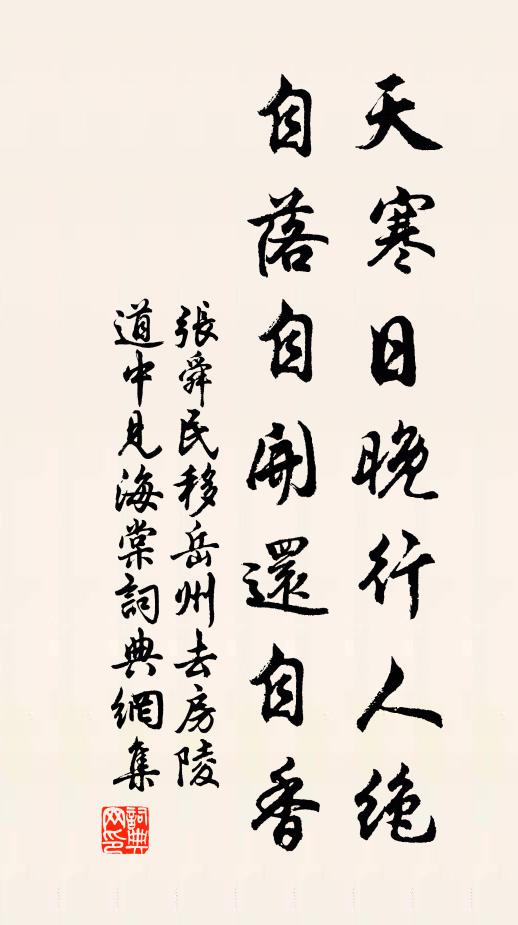 天寒日晚行人绝
自落自開還自香
張舜民移岳州去房陵
道中見海棠詞典網集
詞典网印